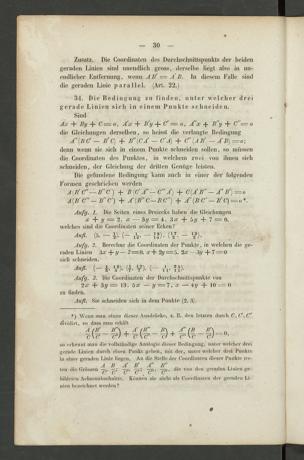 — 30 —
Zusatz. Die Coordinaten des Durchschnittspunkts der beiden
geraden Linien sind unendlich gross, derselbe liegt also in un-
endlicher Entfernung, wenn AB' = A'B. In diesem Falle sind
die geraden Linie parallel. (Art. 22.)
34. Die Bedingung zu finden, unter welcher drei
gerade Linien sich in einem Punkte schneiden.
Sind
Ax + By + C = 0, A'x + B'y + C' = 0, A''x + B''y + C'' = 0
die Gleichungen derselben, so heisst die verlangte Bedingung
A''(BC' — B'C) + B''(CA' — C'A) + C''(AB' — A'B) = 0;
denn wenn sie sich in einem Punkte schneiden sollen, so müssen
die Coordinaten des Punktes, in welchem zwei von ihnen sich
schneiden, der Gleichung der dritten Genüge leisten.
Die gefundene Bedingung kann auch in einer der folgenden
Formen geschrieben werden
A(B'C'' — B''C') + B(C'A'' — C''A') + C(A'B'' — A''B') = 0
A(B'C'' — B''C') + A'(B''C — BC'') + A''(BC' — B'C) = 0*.
Aufg. 1. Die Seiten eines Dreiecks haben die Gleichungen
x + y = 2, x — 3y = 4, 3x + 5y + 7 = 0,
welches sind die Coordinaten seiner Ecken?
Aufl.
Aufg. 2. Berechne die Coordinaten der Punkte, in welchen die ge-
raden Linien 3x + y — 2 = 0, x + 2y = 5, 2x — 3y + 7 = 0
sich schneiden.
Aufl.
Aufg. 3. Die Coordinaten der Durchschnittspunkte von
2x + 3y = 13, 5x — y = 7, x — 4y + 10 = 0
zu finden.
Aufl. Sie schneiden sich in dem Punkte (2, 3).
*) Wenn man einen dieser Ausdrücke, z. B. den letzten durch C, C', C''
dividirt, so dass man erhält
so erkennt man die vollständige Analogie dieser Bedingung, unter welcher drei
gerade Linien durch einen Punkt gehen, mit der, unter welcher drei Punkte
in einer geraden Linie liegen. An die Stelle der Coordinaten dieser Punkte tre-
ten die Grössen A/C, B/C, A'/C', B'/C', A''/C'', B''/C'', die von den geraden Linien ge-
bildeten Achsenabschnitte. Können sie nicht als Coordinaten der geraden Li-
nien bezeichnet werden?